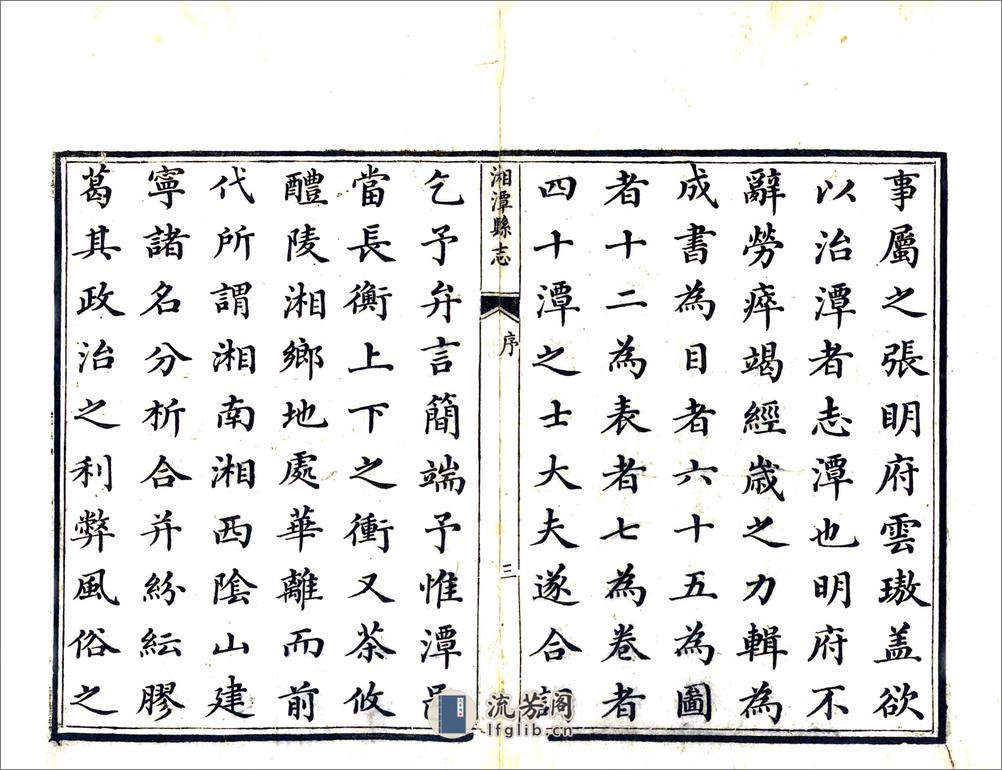 事屬之張明府雲璈盖欲
以治潭者志潭也明府不
辭勞瘁竭經歲之力輯為
成書為目者六十五為圖
者十二為表者七為卷者
四十潭之士大夫遂合詞
湘潭縣志
序
三
乞予弁言簡端予惟潭邑
當長衡上下之衝又茶攸
醴陵湘鄉地處華離而前
代所謂湘南湘西陰山建
寧諸名分析合并紛紜膠
葛其政治之利弊風俗之
流芳阁
lfglib.cn